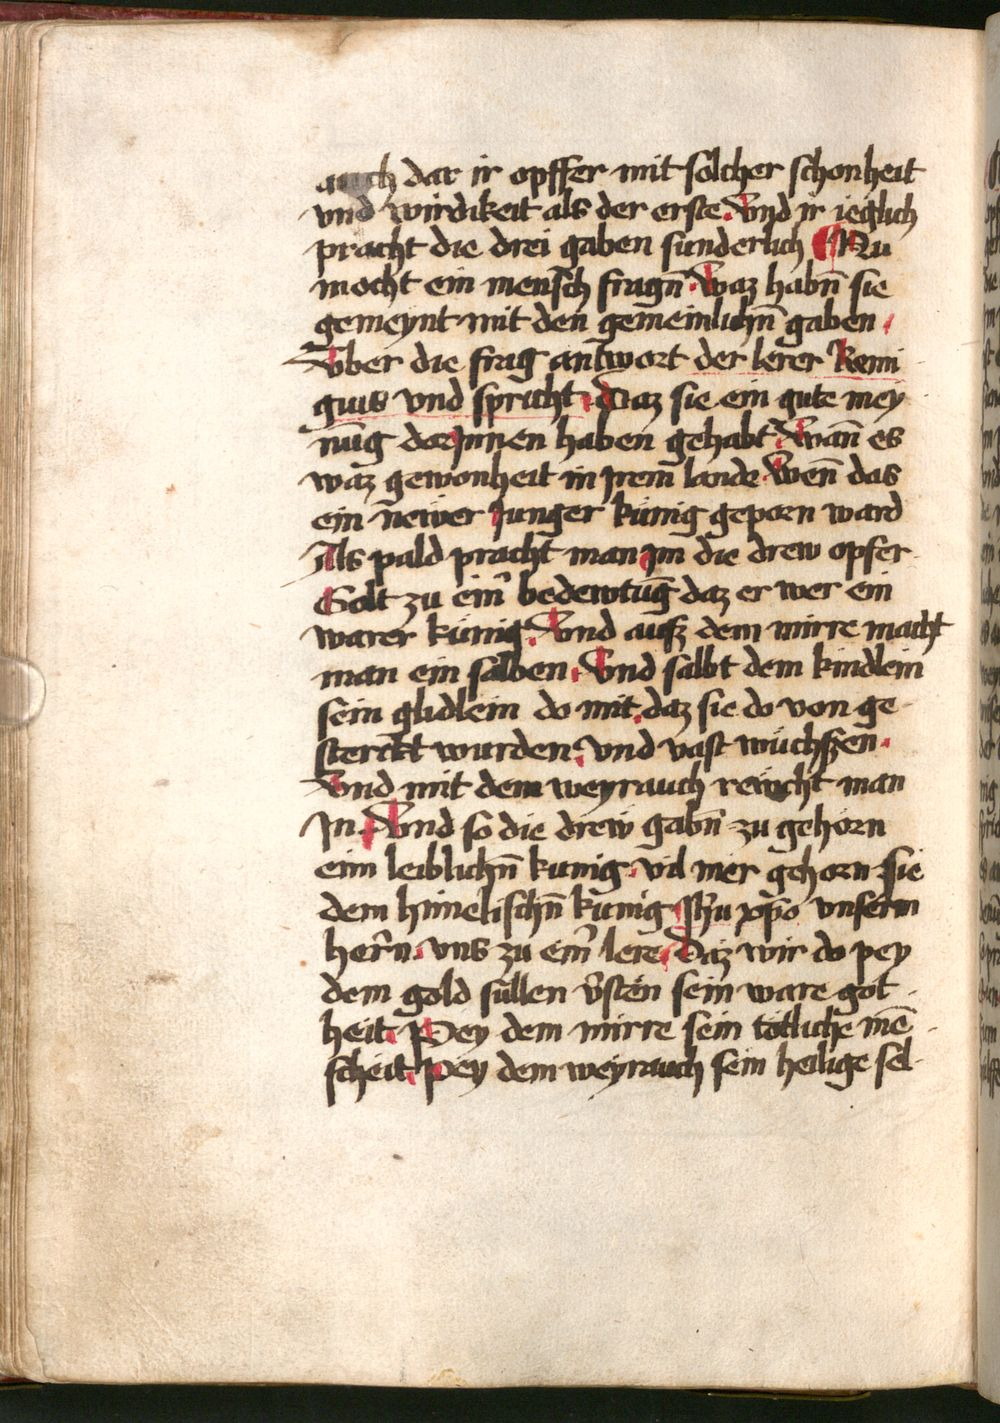 auch dar ir opffer mit solcher schonheit
vnd wirdikeit als der erste. Vnd ir ieglich
pracht die drei gaben sunderlich ¶ Nu
mocht ein mensch fragn̄. Waz habn̄ sie
gemeynt mit den gemeinlichn̄ gaben.
Vber die frag antwort der lerer Remi
gius vnd spricht. Daz sie ein gute mey
nūg dar Jnnen haben gehabt. Wān es
waz gewonheit in Jrem lande. Wen̄ das
ein newer Junger künig geporn ward
Als pald pracht man Jm die drew opfer
Golt zu eim̄ bedewtūg daz er wer ein
warer künig. Vnd aufz dem mirre macht
man ein salben. Vnd salbt dem kindlein
sein glidlein do mit. daz sie do von ge
sterckt wurden. Vnd vast wüchszen.
Vnd mit dem weyrauch rewcht man
Jn. Vnd so die drew gabn̄ zu gehorn
eim leiblichn̄ kunig. vil mer gehorn sie
dem himelischn̄ kunig Jhu xp̄o vnserm
herrn. vns zu eim̄ lere. Daz wir do pey
dem gold süllen v̄sten sein ware got
heit. Pey dem mirre sein tötliche mē
scheit. Pey dem weyrauch sein heilige sel